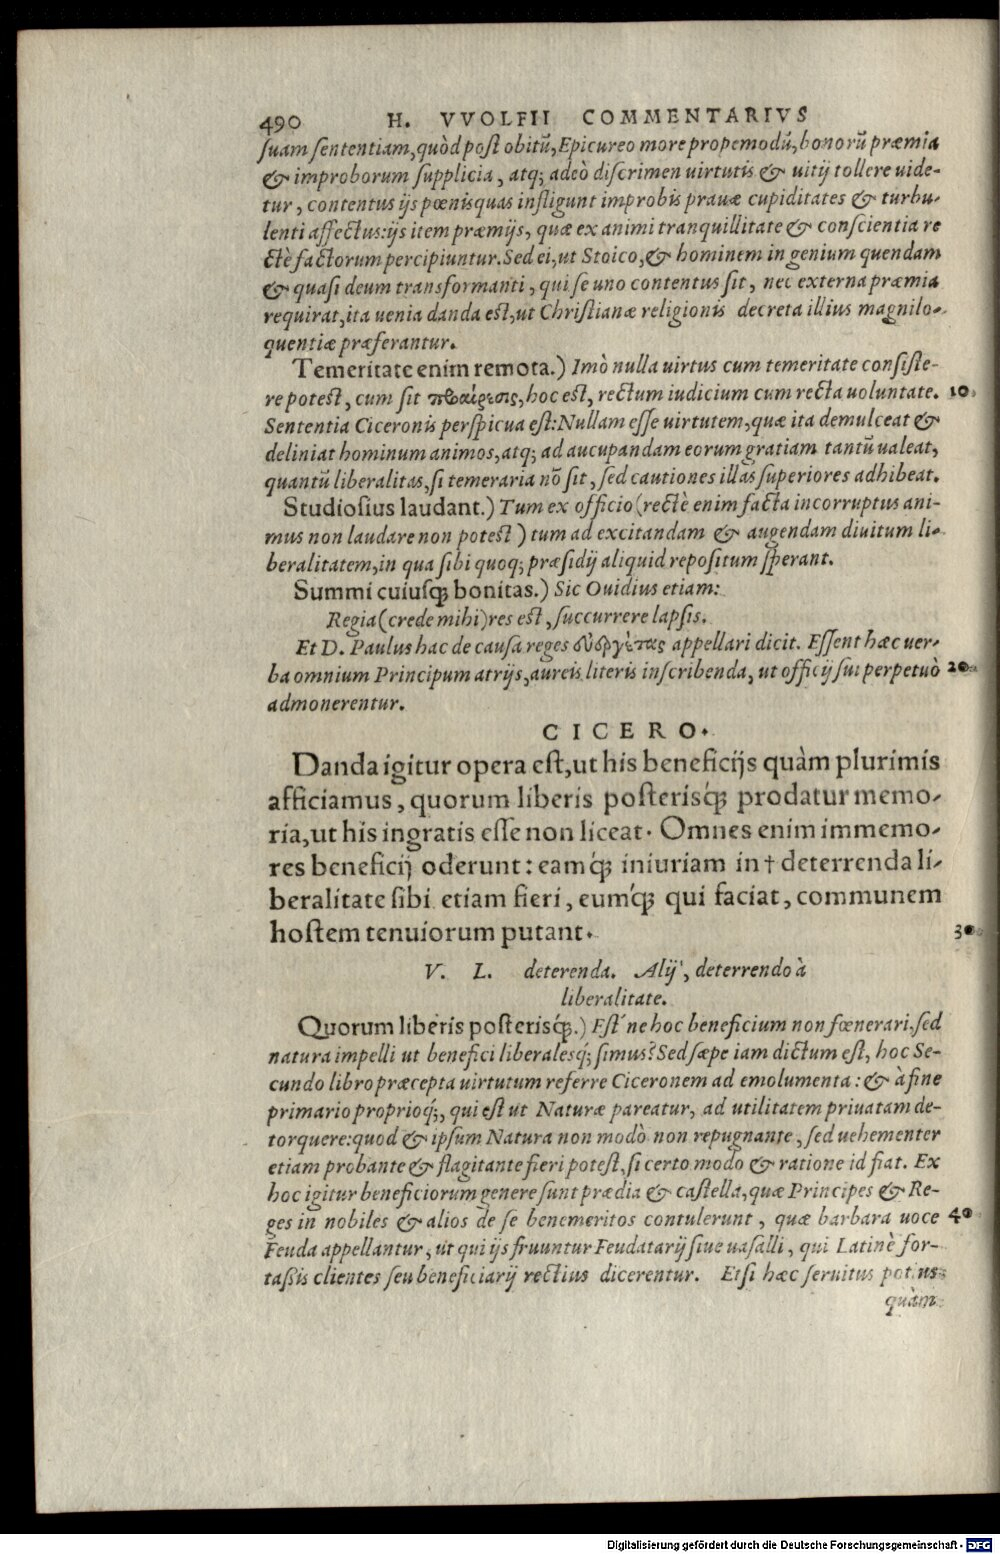 490 H. VVOLFII COMMENTARIVS
suam sententiam, quòd post obitũ, Epicureo more propemodũ, bonorũ præmia
& improborum supplicia, atq; adeò discrimen uirtutis & uitij tollere uide-
tur, contentus ijs pœnis quas infligunt improbis prauæ cupiditates & turbu-
lenti affectus: ijs item præmijs, quæ ex animi tranquillitate & conscientia re
ctè factorum percipiuntur. Sed ei, ut Stoico, & hominem in genium quendam
& quasi deum transformanti, qui se uno contentus sit, nec externa præmia
requirat, ita uenia danda est, ut Christianæ religionis decreta illius magnilo-
quentiæ præferantur.
Temeritate enim remota.) Imò nulla uirtus cum temeritate consiste-
re potest, cum sit προαίρεσις, hoc est, rectum iudicium cum recta uoluntate. 10
Sententia Ciceronis perspicua est: Nullam esse uirtutem, quæ ita demulceat &
deliniat hominum animos, atq; ad aucupandam eorum gratiam tantũ ualeat,
quantũ liberalitas, si temeraria nõ sit, sed cautiones illas superiores adhibeat.
Studiosius laudant.) Tum ex officio (rectè enim facta incorruptus ani-
mus non laudare non potest) tum ad excitandam & augendam diuitum li-
beralitatem, in qua sibi quoq; præsidij aliquid repositum sperant.
Summi cuiusq; bonitas.) Sic Ouidius etiam:
Regia (crede mihi) res est, succurrere lapsis.
Et D. Paulus hac de causa reges εὐεργέτας appellari dicit. Essent hæc uer-
ba omnium Principum atrijs, aureis literis inscribenda, ut officij sui perpetuò 20
admonerentur.
CICERO.
Danda igitur opera est, ut his beneficijs quàm plurimis
afficiamus, quorum liberis posterisq́; prodatur memo-
ria, ut his ingratis esse non liceat. Omnes enim immemo-
res beneficij oderunt: eamq́; iniuriam in † deterrenda li-
beralitate sibi etiam fieri, eumq́; qui faciat, communem
hostem tenuiorum putant. 30
V. L. deterenda. Alij, deterrendo à
liberalitate.
Quorum liberis posterisq́;.) Est´ne hoc beneficium non fœnerari, sed
natura impelli ut benefici liberalesq́; simus? Sed sæpe iam dictum est, hoc Se-
cundo libro præcepta uirtutum referre Ciceronem ad emolumenta: & à fine
primario proprioq́;, qui est ut Naturæ pareatur, ad utilitatem priuatam de-
torquere: quod & ipsum Natura non modò non repugnante, sed uehementer
etiam probante & flagitante fieri potest, si certo modo & ratione id fiat. Ex
hoc igitur beneficiorum genere sunt prædia & castella, quæ Principes & Re-
ges in nobiles & alios de se benemeritos contulerunt, quæ barbara uoce 40
Feuda appellantur, ut qui ijs fruuntur Feudatarij siue uasalli, qui Latinè for-
tassis clientes seu beneficiarij rectius dicerentur. Etsi hæc seruitus potius
quàm
Digitalisierung gefördert durch die Deutsche Forschungsgemeinschaft - DFG